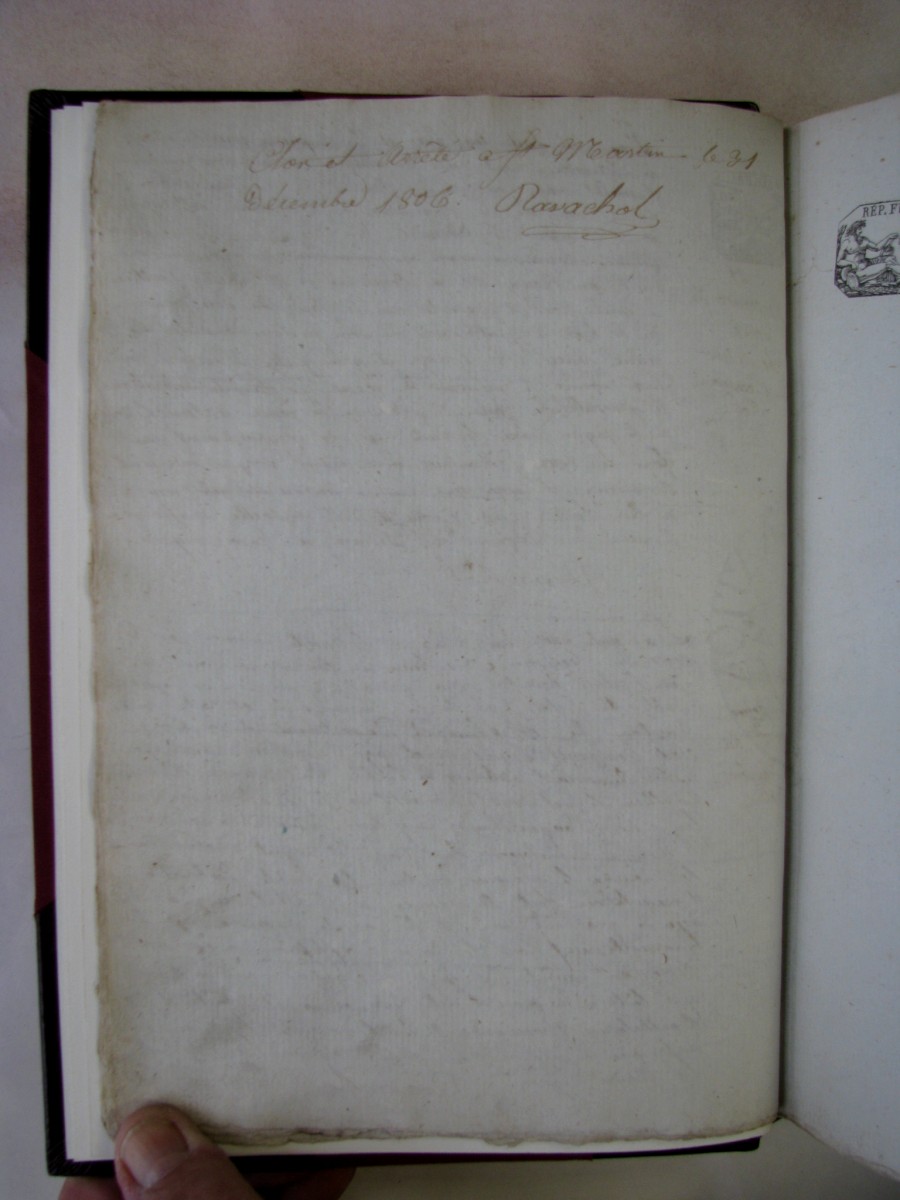 Clos et Arreté a St Martin le 31
Décembre 1806. Ravachol
REP. F